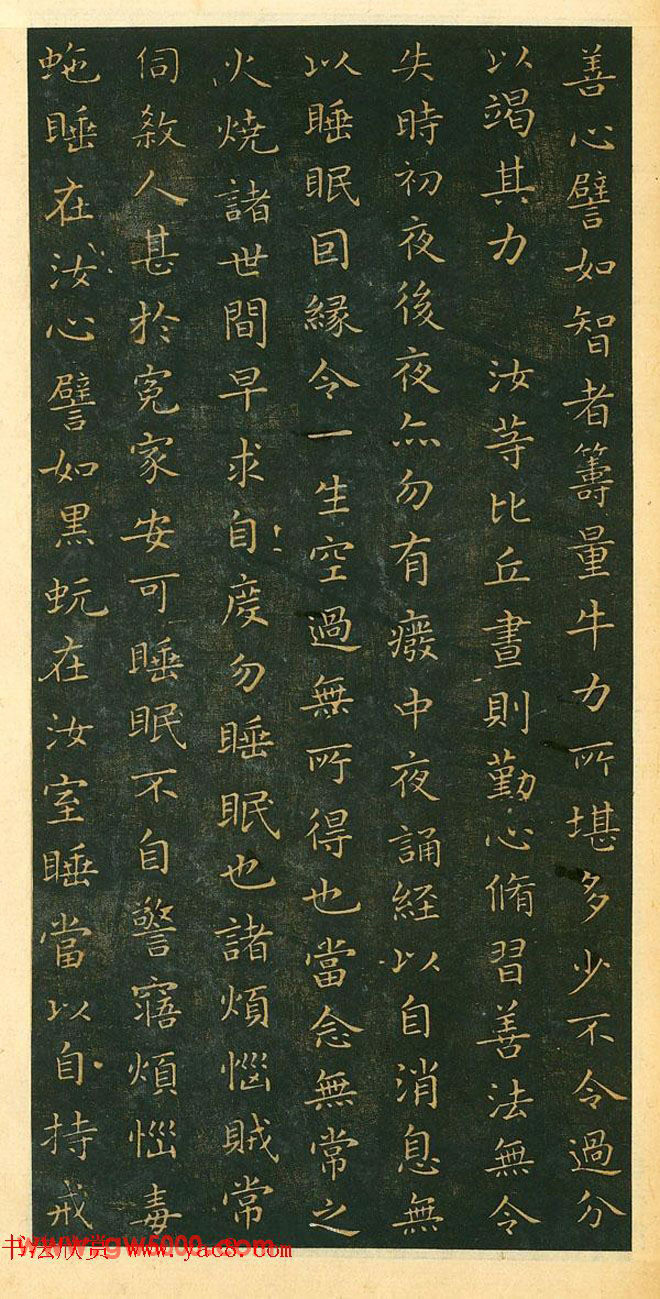 善心譬如智者籌量牛力所堪多少不令過分
以竭其力　汝等比丘晝則勤心脩習善法無令
失時初夜後夜亦勿有癈中夜誦経以自消息無
以睡眠因縁令一生空過無所得也當念無常之
火焼諸世間早求自度勿睡眠也諸煩惱賊常
伺煞人甚於冤家安可睡眠不自警寤煩惱毒
虵睡在汝心譬如黒蚖在汝室睡當以自持戒
书法欣赏 www.yac8.com